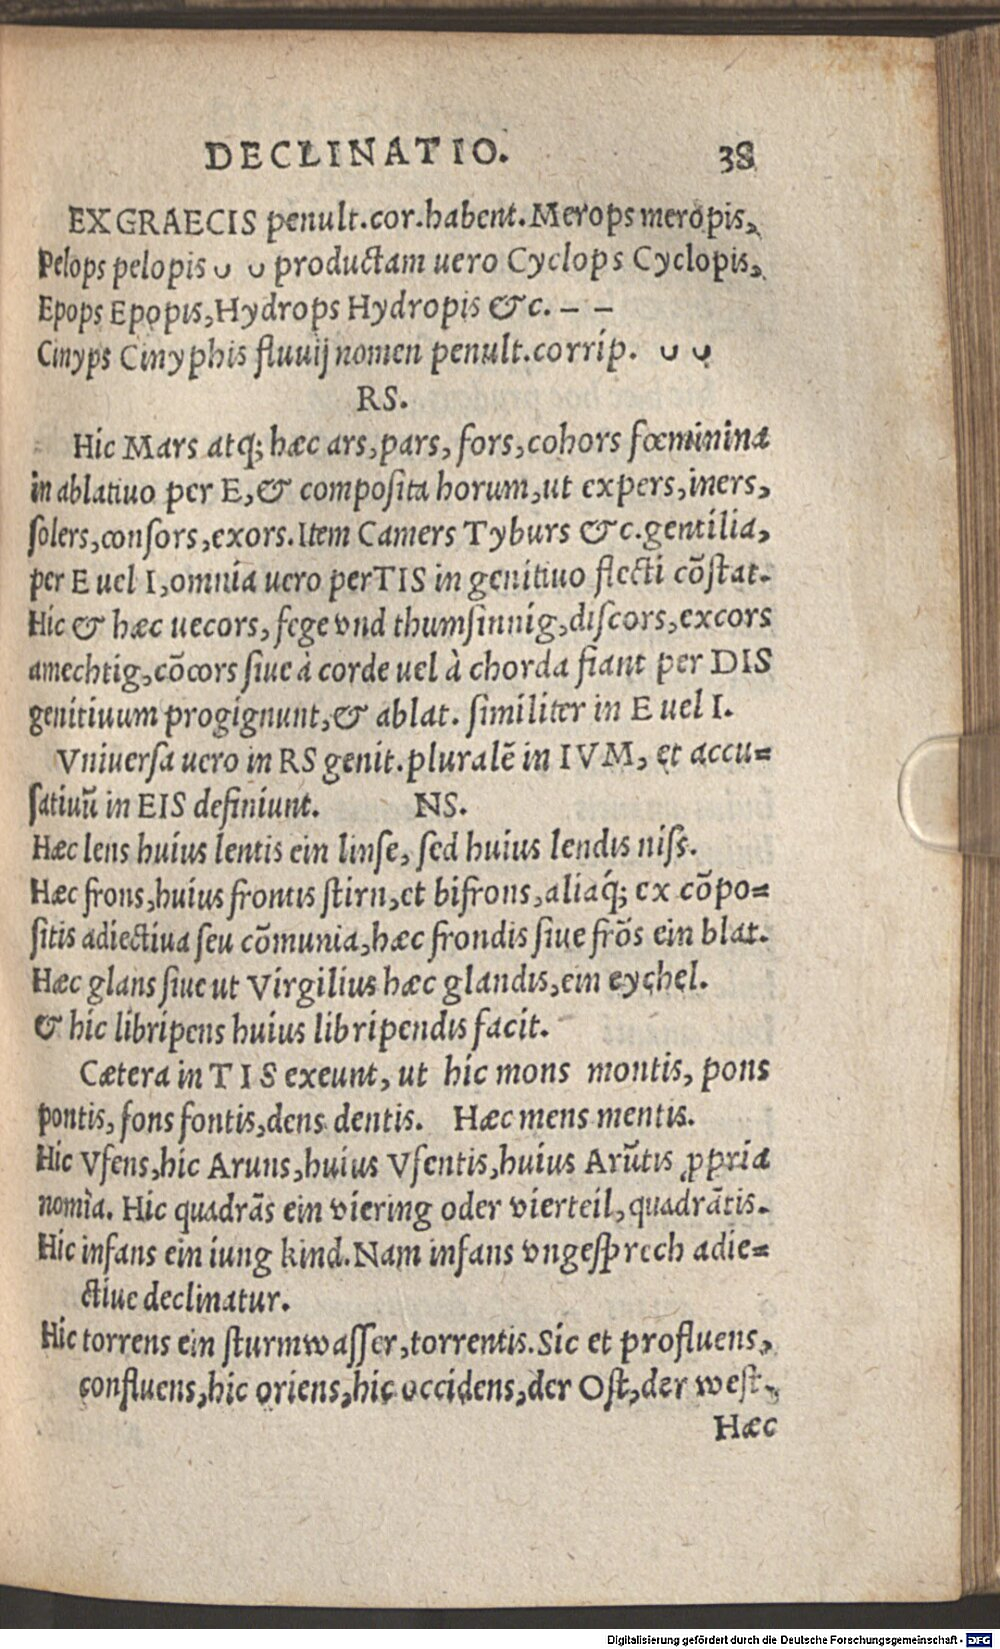 DECLINATIO. 38
EX GRAECIS penult.cor.habent.Merops meropis,
Pelops pelopis ᴗ ᴗ productam uero Cyclops Cyclopis,
Epops Epopis,Hydrops Hydropis &c. – –
Cinyps Cinyphis fluuij nomen penult.corrip. ᴗ ᴗ
RS.
Hic Mars atq; hæc ars,pars, fors,cohors fœminina
in ablatiuo per E,& composita horum,ut expers,iners,
solers,consors,exors.Item Camers Tyburs &c.gentilia,
per E uel I,omnia uero per TIS in genitiuo flecti cōstat.
Hic & hæc uecors, fege vnd thumsinnig,discors,excors
amechtig,cōcors siue à corde uel à chorda fiant per DIS
genitiuum progignunt,& ablat. similiter in E uel I.
Vniuersa uero in RS genit.pluralē in IVM, et accu=
satiuū in EIS definiunt. NS.
Hæc lens huius lentis ein linse, sed huius lendis niss.
Hæc frons,huius frontis stirn,et bifrons,aliaq́; ex cōpo=
sitis adiectiua seu cōmunia,hæc frondis siue frōs ein blat.
Hæc glans siue ut Virgilius hæc glandis,ein eychel.
& hic libripens huius libripendis facit.
Cætera in TIS exeunt, ut hic mons montis, pons
pontis, fons fontis,dens dentis. Hæc mens mentis.
Hic Vfens,hic Aruns,huius Vfentis,huius Arūtis ꝓpria
nomīa. Hic quadrās ein viering oder vierteil, quadrātis.
Hic infans ein iung kind.Nam infans vngesprech adie=
ctiue declinatur.
Hic torrens ein sturmwasser,torrentis.Sic et profluens,
confluens,hic oriens,hic occidens,der Ost,der west,
Hæc
Digitalisierung gefördert durch die Deutsche Forschungsgemeinschaft - DFG